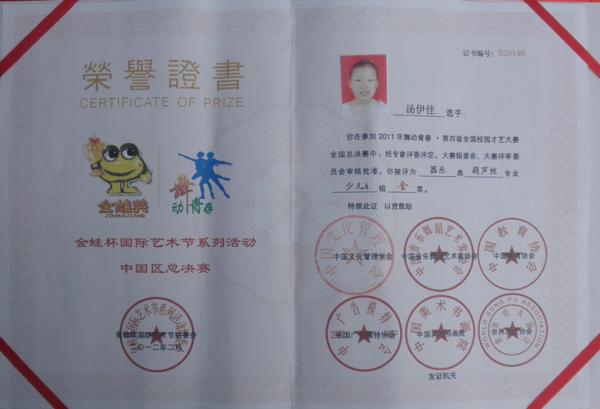 榮譽證書
CERTIFICATE OF PRIZE
金蛙奖
JINWAJIANG
舞动青春
金蛙杯国际艺术节系列活动
中国区总决赛
二〇一二年二月
证书编号：020140
汤伊佳 选手：
你在参加2011年舞动青春·第四届全国校园才艺大赛
全国总决赛中，经专家评委评定，大赛组委会、大赛评审委
员会审核批准，你被评为 器乐 类 葫芦丝 专业
少儿A 组 金 奖。
特颁此证 以资鼓励
中国文化管理学会
中国音乐舞蹈艺术家协会
中国教育协会
中国广告模特协会
中国美术书画院
WORLD KUNG FU ASSOCIATION
发证机关